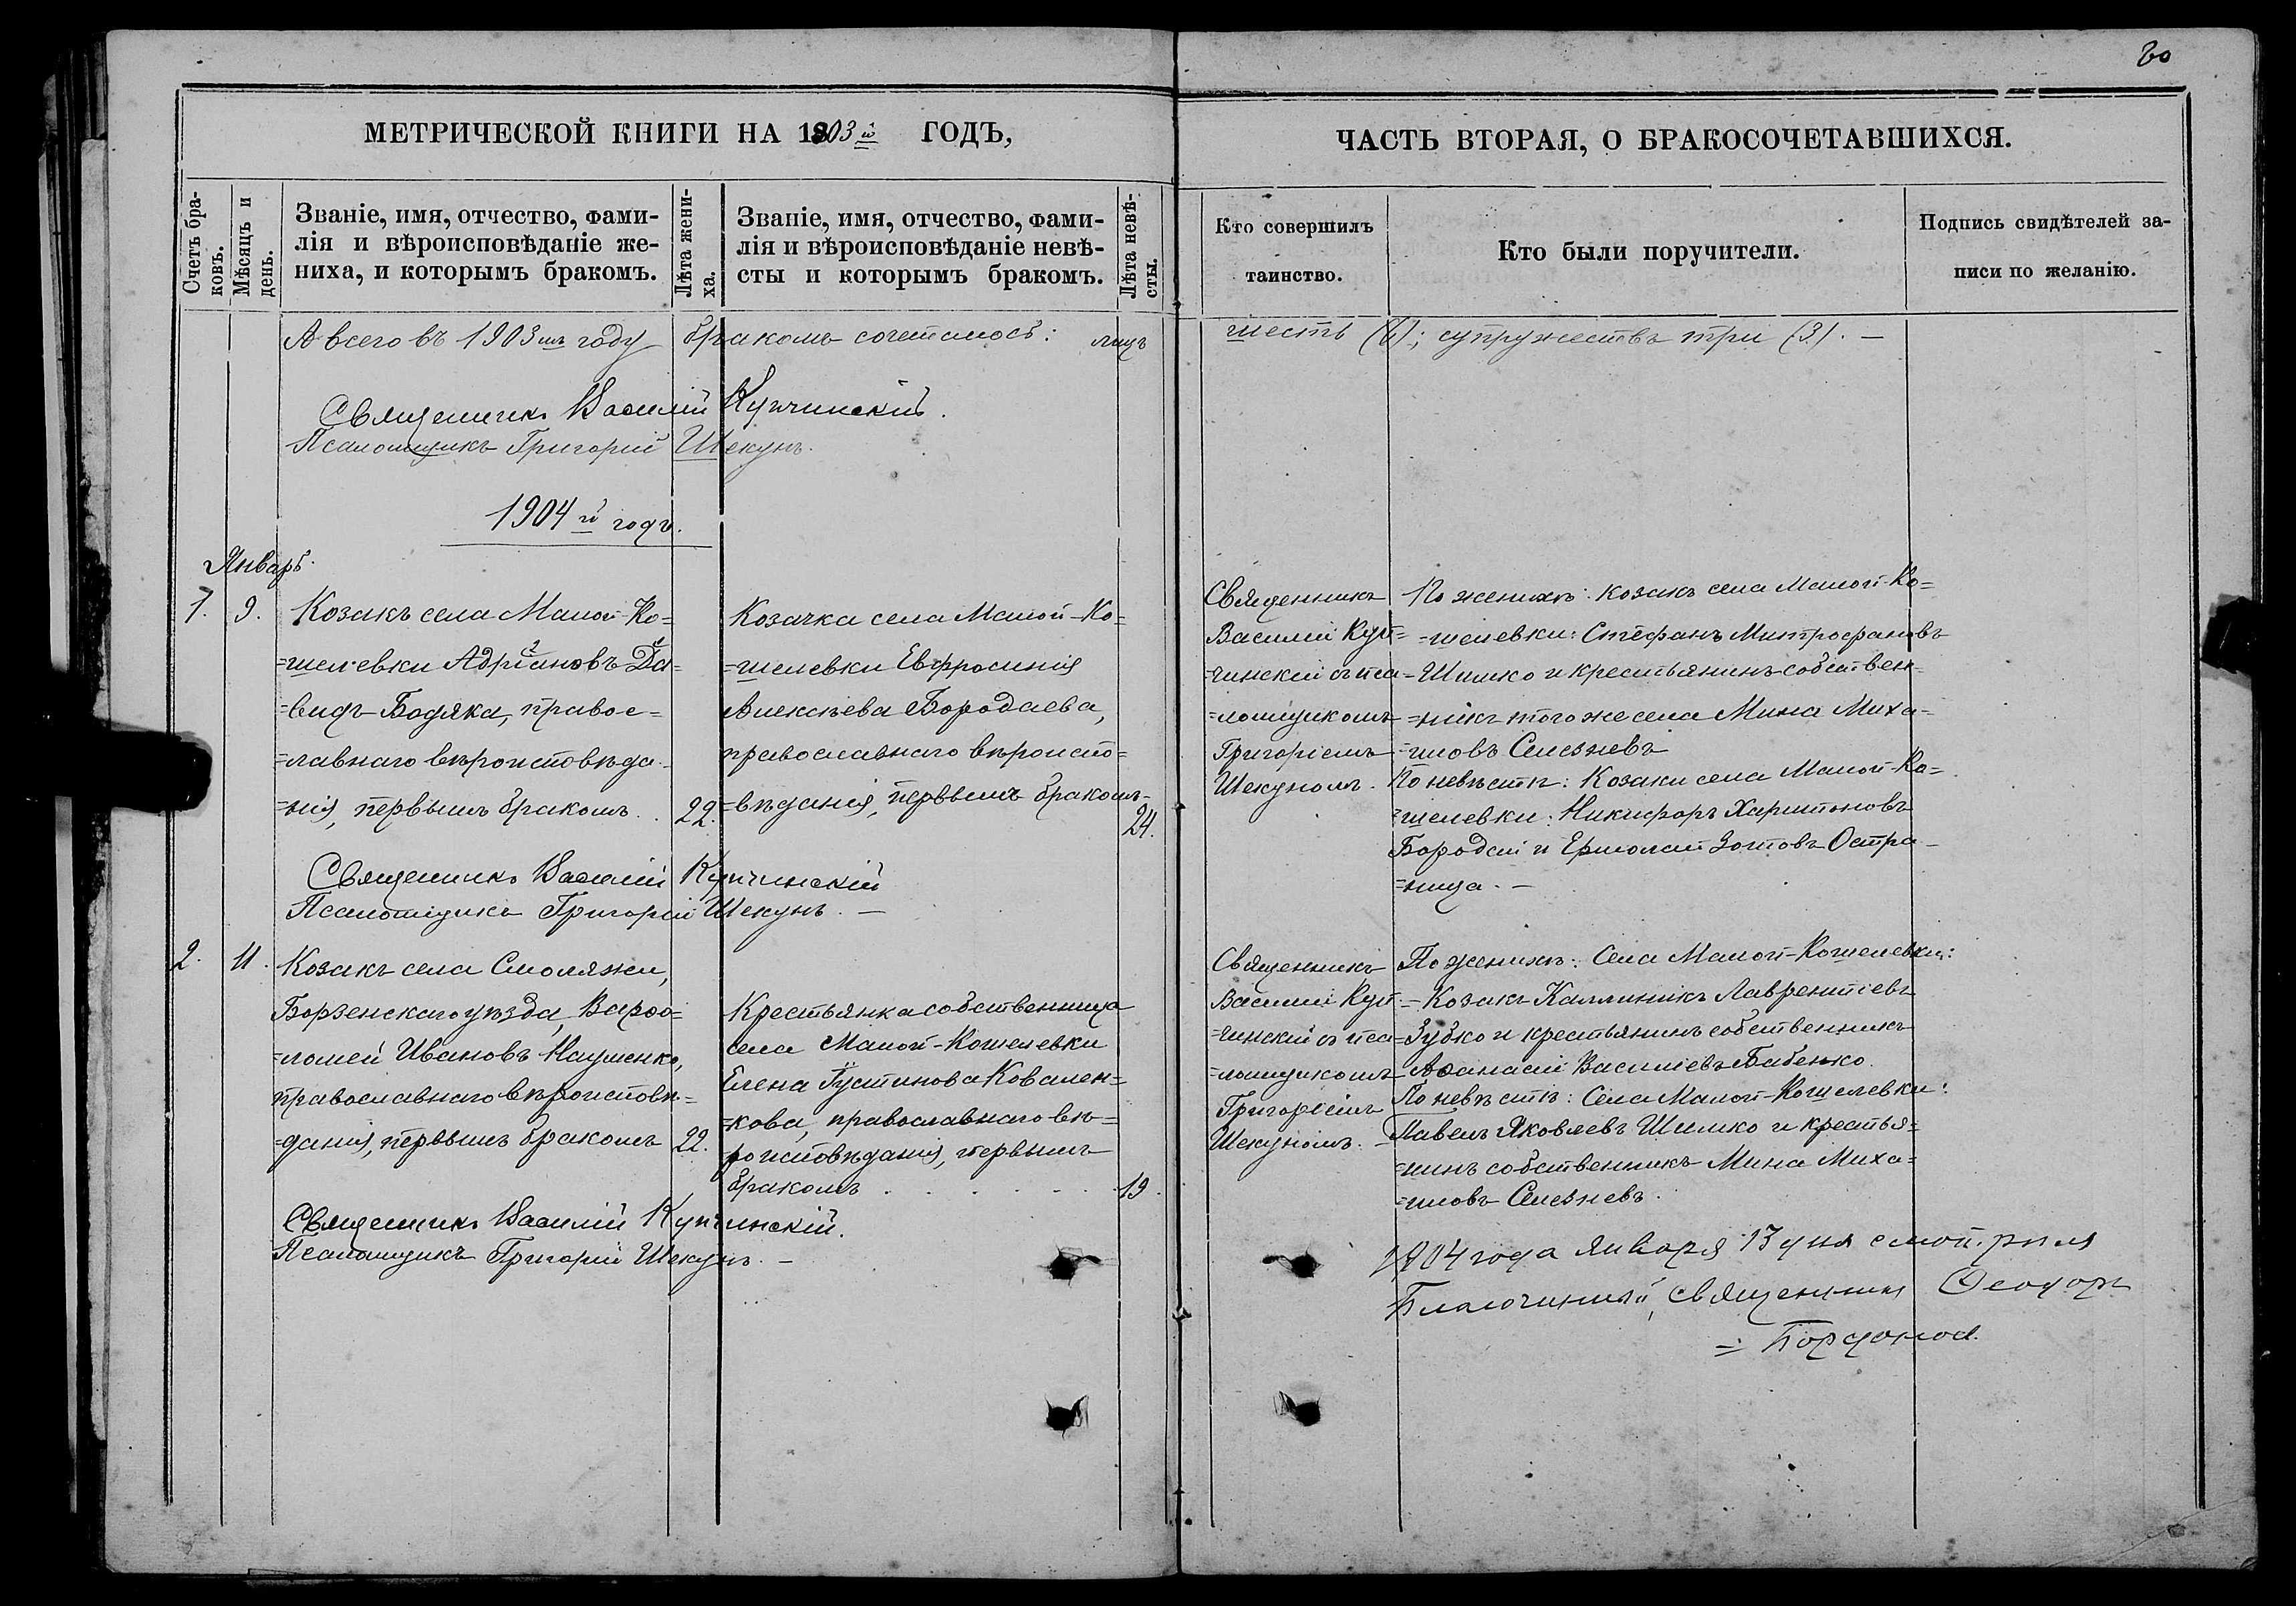 60
МЕТРИЧЕСКОЙ КНИГИ НА 1903й ГОДЪ,
ЧАСТЬ ВТОРАЯ, О БРАКОСОЧЕТАВШИХСЯ.
Счетъ бра-
ковъ.
Мѣсяцъ и
день.
Званіе, имя, отчество, фами-
лія и вѣроисповѣданіе же-
ниха, и которымъ бракомъ.
Лѣта жени-
ха.
Званіе, имя, отчество, фами-
лія и вѣроисповѣданіе невѣ-
сты и которымъ бракомъ.
Лѣта невѣ-
сты.
Кто совершилъ
таинство.
Кто были поручители.
Подпись свидѣтелей за-
писи по желанію.
А всего въ 1903мъ году бракомъ сочеталось: лицъ шесть (6); супружествъ три (3). —
Священникъ Василій Купчинскій.
Псаломщикъ Григорій Шекунъ.
1904й годъ.
Январь.
1.
9.
Козакъ села Малой-Ко=
=шелевки Адріановъ Да=
=видъ Бодяка, правос=
=лавнаго вѣроисповѣда-
=нія, первымъ бракомъ.
22.
Козачка села Малой-Ко=
=шелевки Евфросинія
Алексѣева Бородаева,
православнаго вѣроиспо=
=вѣданія, первымъ бракомъ-
24.
Священникъ
Василій Куп=
=чинскій съ пса=
=ломщикомъ
Григоріемъ
Шекуномъ.
По женихѣ: козакъ села Малой-Ко=
=шелевки: Стефанъ Митрофановъ
Шимко и крестьянинъ собствен-
=никъ того же села Мина Миха=
=иловъ Селезневъ
По невѣстѣ: Козаки села Малой-Ко=
=шелевки: Никифоръ Харитоновъ
Бородай и Ермолай Зотовъ Остра-
=ница. —
Священникъ Василій Купчинскій
Псаломщикъ Григорій Шекунъ. —
2.
11.
Козакъ села Смоляжи,
Борзенскаго уѣзда, Варѳо=
=ломей Ивановъ Науменко,
православнаго вѣроисповѣ=
=данія, первымъ бракомъ
22.
Крестьянка собственница
села Малой-Кошелевки
Елена Іустинова Ковален=
=кова, православнаго вѣ=
=роисповѣданія, первымъ
бракомъ
19.
Священникъ
Василій Куп-
=чинскій съ пса=
=ломщикомъ
Григоріемъ
Шекуномъ.
По женихѣ: Села Малой-Кошелевки:
Козакъ Каллиникъ Лаврентіевъ
Зубко и крестьянинъ собственникъ
Аѳанасій Василіевъ Бабенко.
По невѣстѣ: Села Малой-Кошелевки:
Павелъ Яковлевъ Шимко и крестья=
=нинъ собственникъ Мина Миха=
=иловъ Селезневъ.
Священникъ Василій Купчинскій.
Псаломщикъ Григорій Шекунъ. —
1904 года Января 13 дня смотрѣлъ
Благочинный, Священникъ Ѳеодоръ